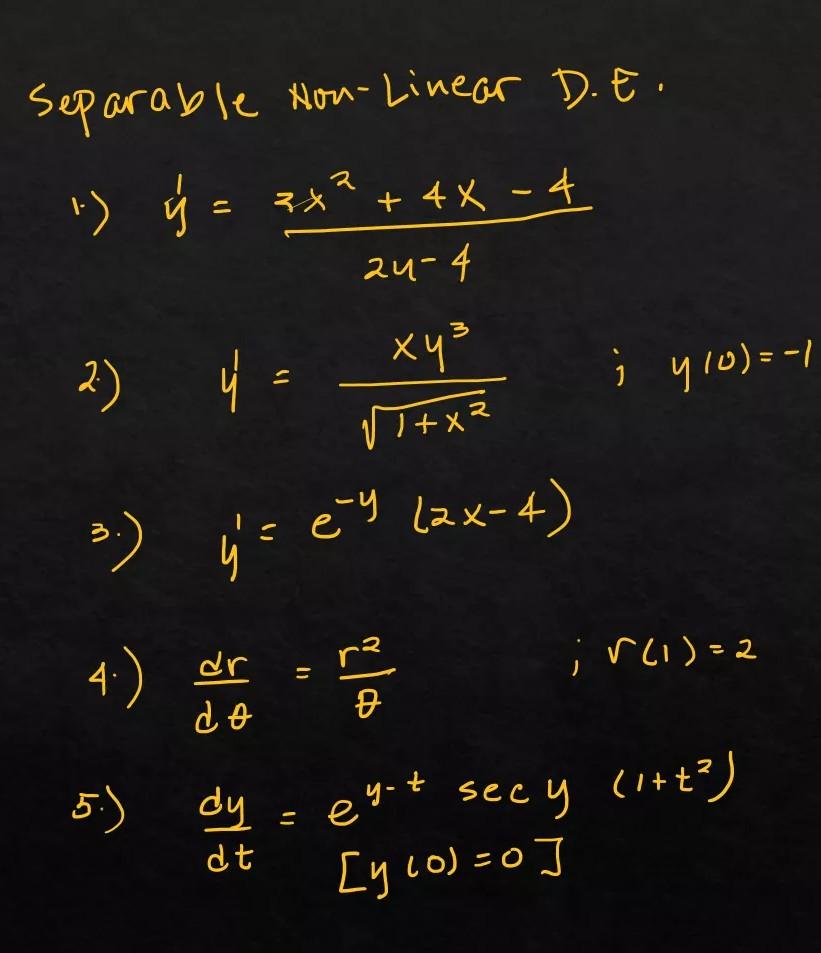 Separable Non-Linear D.E.
1.) y' = 3x² + 4x - 4 / 2y-4
2.) y' = xy³ / √1+x² ; y(0) = -1
3.) y' = e^-y (2x-4)
4.) dr/dθ = r²/θ ; r(1) = 2
5.) dy/dt = e^y-t sec y (1+t²)
[y(0) = 0]